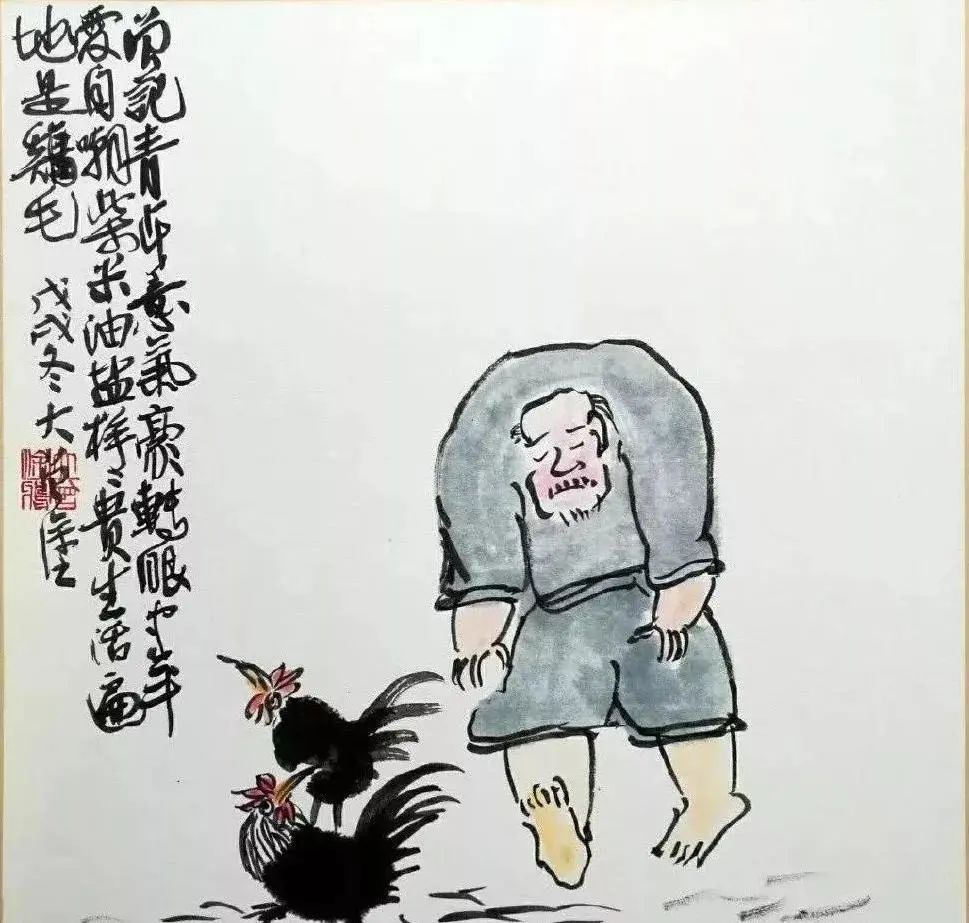 曾記青年意氣豪轉眼中年
愛自嘲柴米油盐樣〻貴生活遍
地是鷄毛 戊戌冬大曾塗